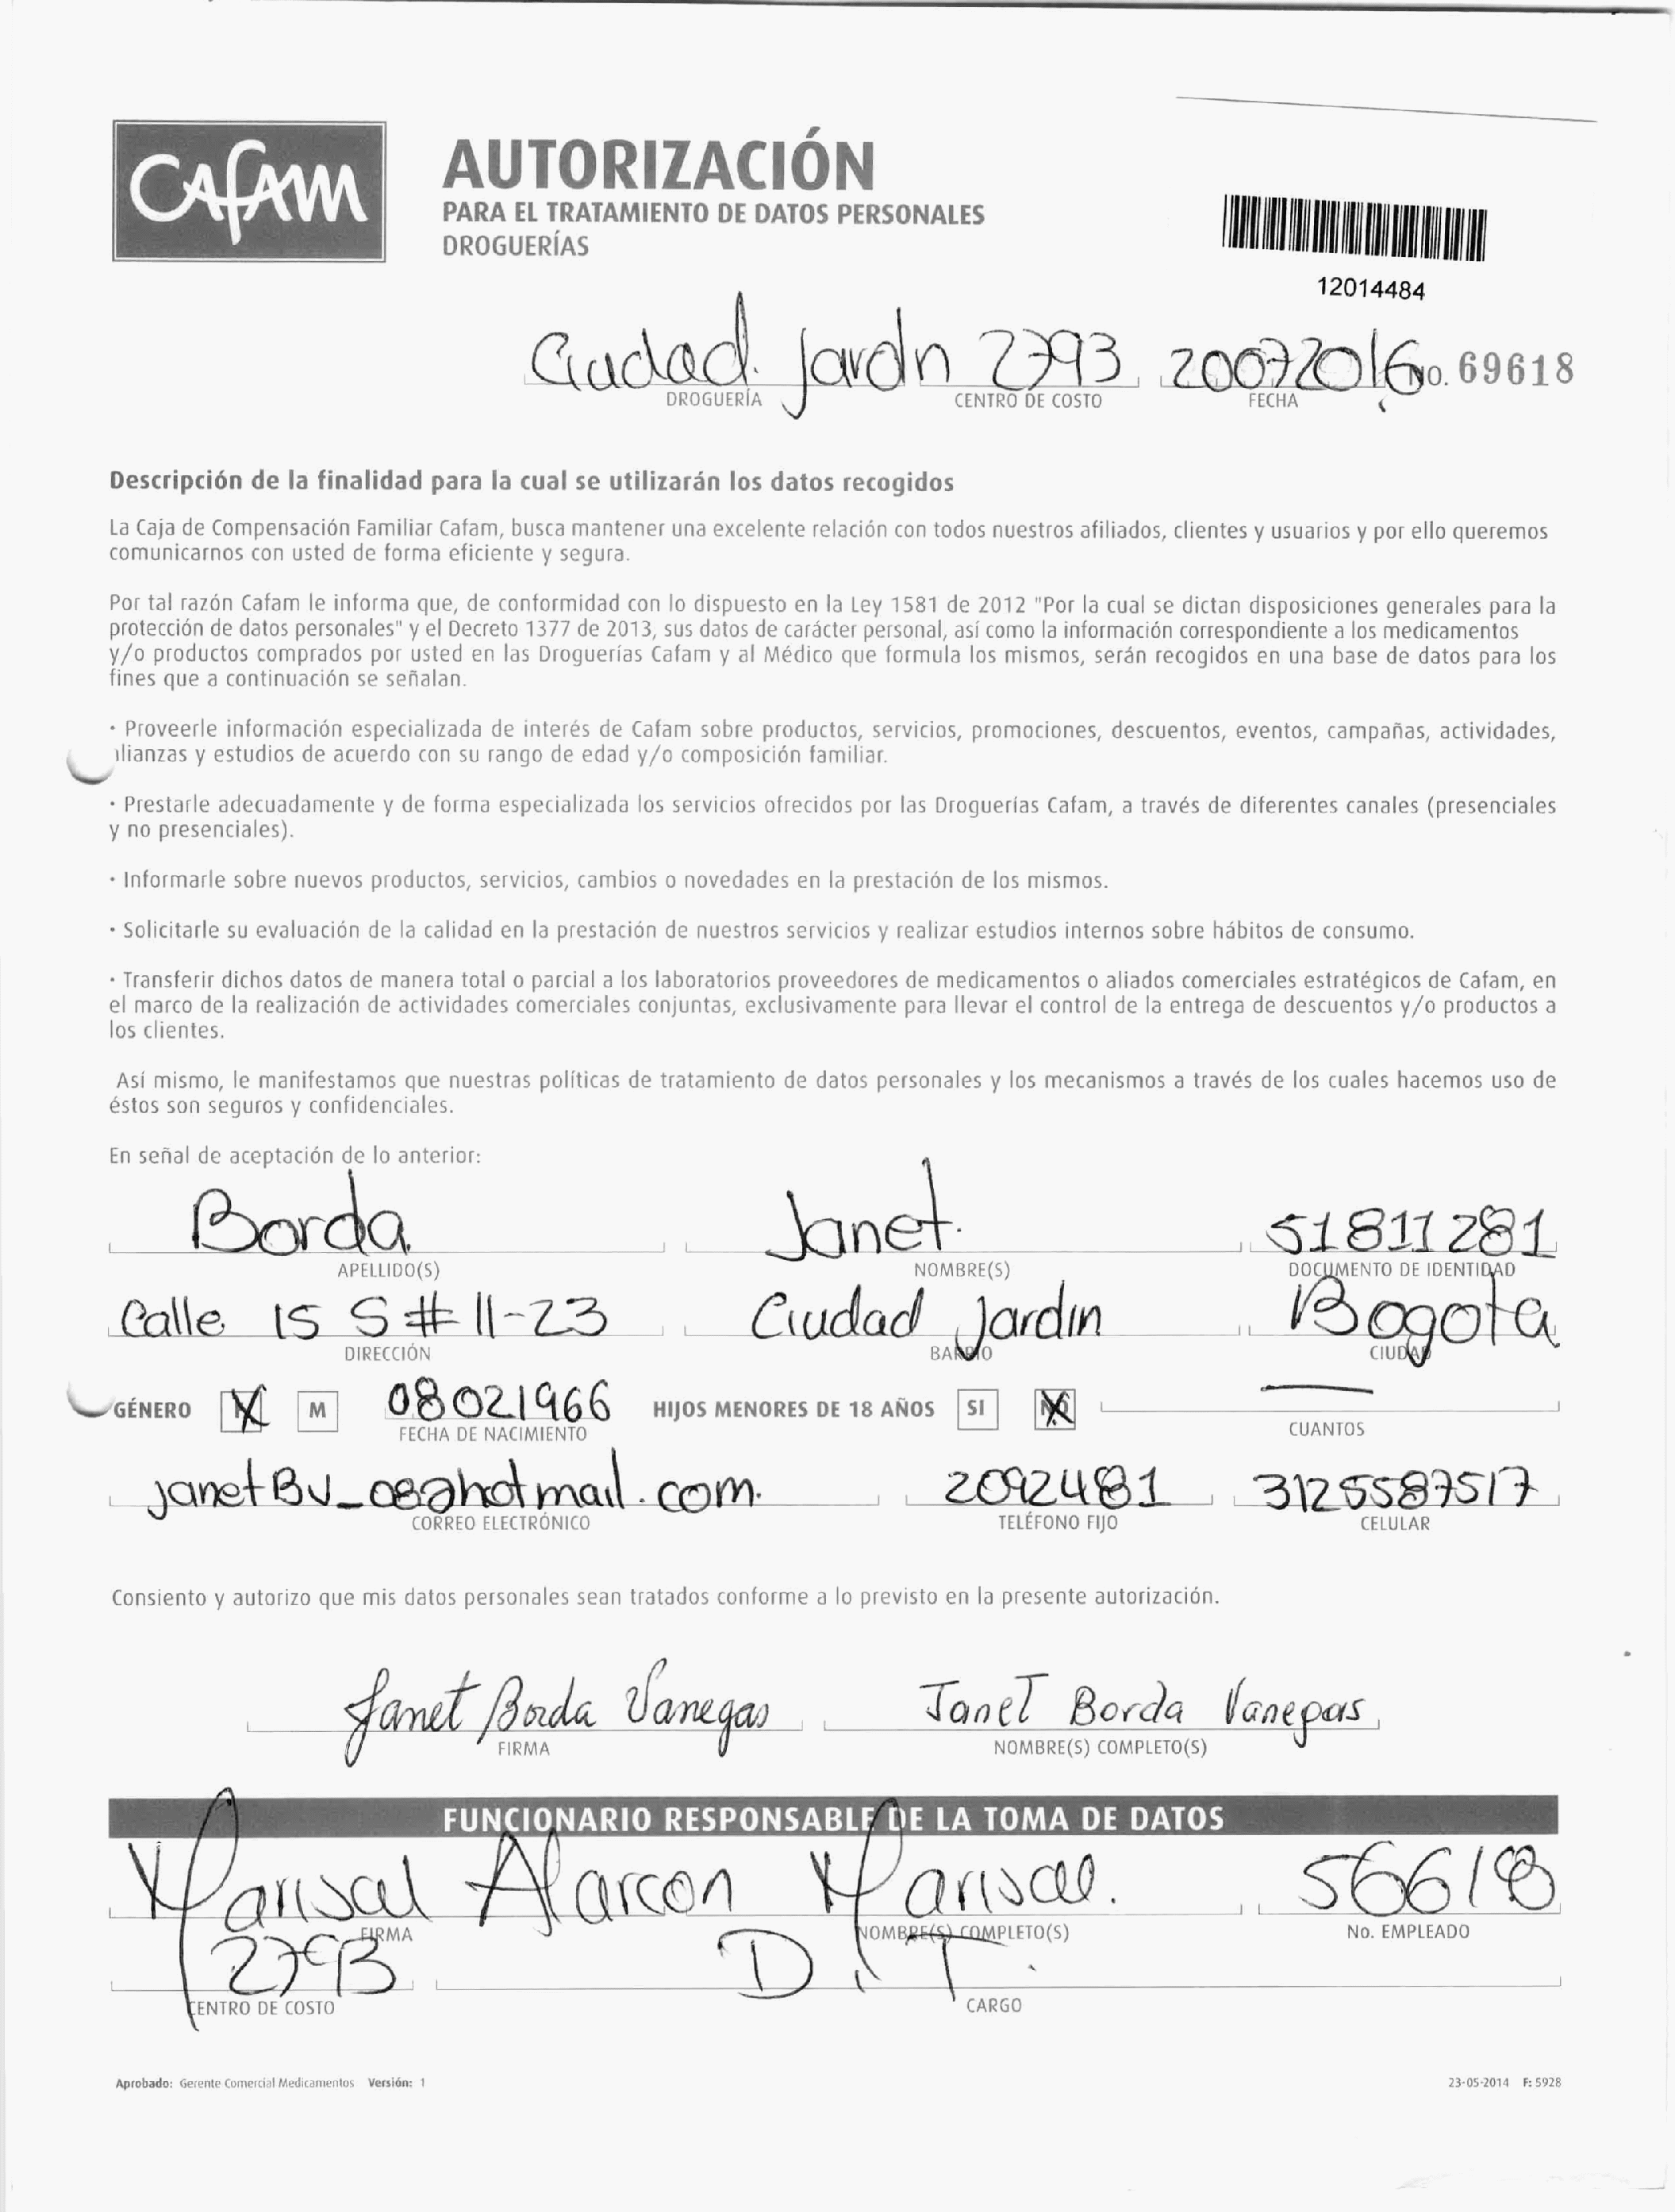 CAFAM
AUTORIZACIÓN
PARA EL TRATAMIENTO DE DATOS PERSONALES
DROGUERÍAS
12014484
Ciudad Jardn 2793 20072016 No. 69618
DROGUERÍA CENTRO DE COSTO FECHA
Descripción de la finalidad para la cual se utilizarán los datos recogidos
La Caja de Compensación Familiar Cafam, busca mantener una excelente relación con todos nuestros afiliados, clientes y usuarios y por ello queremos
comunicarnos con usted de forma eficiente y segura.
Por tal razón Cafam le informa que, de conformidad con lo dispuesto en la Ley 1581 de 2012 "Por la cual se dictan disposiciones generales para la
protección de datos personales" y el Decreto 1377 de 2013, sus datos de carácter personal, así como la información correspondiente a los medicamentos
y/o productos comprados por usted en las Droguerías Cafam y al Médico que formula los mismos, serán recogidos en una base de datos para los
fines que a continuación se señalan.
· Proveerle información especializada de interés de Cafam sobre productos, servicios, promociones, descuentos, eventos, campañas, actividades,
alianzas y estudios de acuerdo con su rango de edad y/o composición familiar.
· Prestarle adecuadamente y de forma especializada los servicios ofrecidos por las Droguerías Cafam, a través de diferentes canales (presenciales
y no presenciales).
· Informarle sobre nuevos productos, servicios, cambios o novedades en la prestación de los mismos.
· Solicitarle su evaluación de la calidad en la prestación de nuestros servicios y realizar estudios internos sobre hábitos de consumo.
· Transferir dichos datos de manera total o parcial a los laboratorios proveedores de medicamentos o aliados comerciales estratégicos de Cafam, en
el marco de la realización de actividades comerciales conjuntas, exclusivamente para llevar el control de la entrega de descuentos y/o productos a
los clientes.
Así mismo, le manifestamos que nuestras políticas de tratamiento de datos personales y los mecanismos a través de los cuales hacemos uso de
éstos son seguros y confidenciales.
En señal de aceptación de lo anterior:
Borda Janet. 51811281
APELLIDO(S) NOMBRE(S) DOCUMENTO DE IDENTIDAD
Calle 15 S # 11-23 Ciudad Jardin Bogota
DIRECCIÓN BARRIO CIUDAD
GÉNERO X M 08021966 HIJOS MENORES DE 18 AÑOS SI NO X —
FECHA DE NACIMIENTO CUANTOS
janetBv_08@hotmail.com. 2092481 3125587517
CORREO ELECTRÓNICO TELÉFONO FIJO CELULAR
Consiento y autorizo que mis datos personales sean tratados conforme a lo previsto en la presente autorización.
Janet Borda Vanegas Janet Borda Vanegas
FIRMA NOMBRE(S) COMPLETO(S)
FUNCIONARIO RESPONSABLE DE LA TOMA DE DATOS
Marisol Alarcon Marisol. 56618
FIRMA NOMBRE(S) COMPLETO(S) No. EMPLEADO
2793 D.T.
CENTRO DE COSTO CARGO
Aprobado: Gerente Comercial Medicamentos Versión: 1 23-05-2014 F: 5928